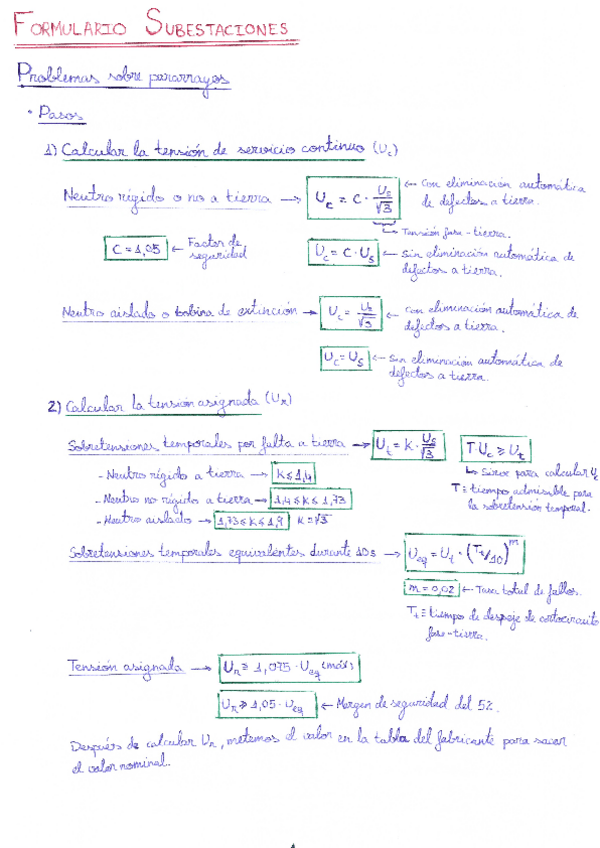 FORMULARIO SUBESTACIONES
Problemas sobre pararrayos
• Pasos
1) Calcular la tensión de servicio continuo (Uc)
Neutro rígido o no a tierra → Uc = C · Us/√3 ← Con eliminación automática de defectos a tierra.
Tensión fase-tierra.
C = 1,05 ← Factor de seguridad
Uc = C · Us ← Sin eliminación automática de defectos a tierra.
Neutro aislado o bobina de extinción → Uc = Us/√3 ← Con eliminación automática de defectos a tierra.
Uc = Us ← Sin eliminación automática de defectos a tierra.
2) Calcular la tensión asignada (UR)
Sobretensiones temporales por falta a tierra → Ut = K · Us/√3 T·Uc ≥ Ut
↳ Sirve para calcular Uc
- Neutro rígido a tierra → K ≤ 1,4
T ≡ tiempo admisible para la sobretensión temporal.
- Neutro no rígido a tierra → 1,4 ≤ K ≤ 1,73
- Neutro aislado → 1,73 ≤ K ≤ 1,9 K = √3
Sobretensiones temporales equivalentes durante 10s → Ueq = Ut · (Tt/10)^m
m = 0,02 ← Tasa total de fallos.
Tt ≡ tiempo de despeje de cortocircuito fase-tierra.
Tensión asignada → UR ≥ 1,075 · Ueq (máx)
UR ≥ 1,05 · Ueq ← Margen de seguridad del 5%.
Después de calcular UR, metemos el valor en la tabla del fabricante para sacar
el valor nominal.
1